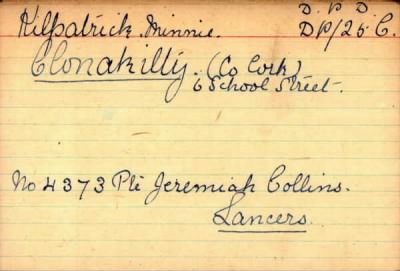 Kilpatrick. Minnie.
D. P. D
DP/25 C.
Clonakilty. (Co Cork)
6 School Street.
No 4373 Pte Jeremiah Collins.
Lancers.